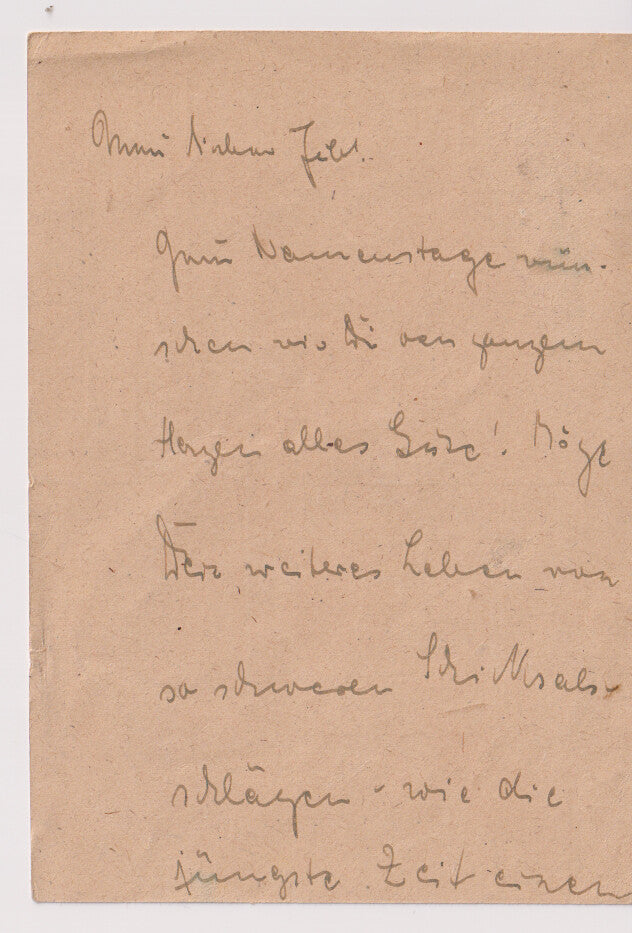 Mein lieber
Zum Namenstage wün-
schen wir Dir von ganzem
Herzen alles Gute! Möge
Dein weiteres Leben von
so schweren Schicksals-
schlägen - wie die
jüngste Zeit einen